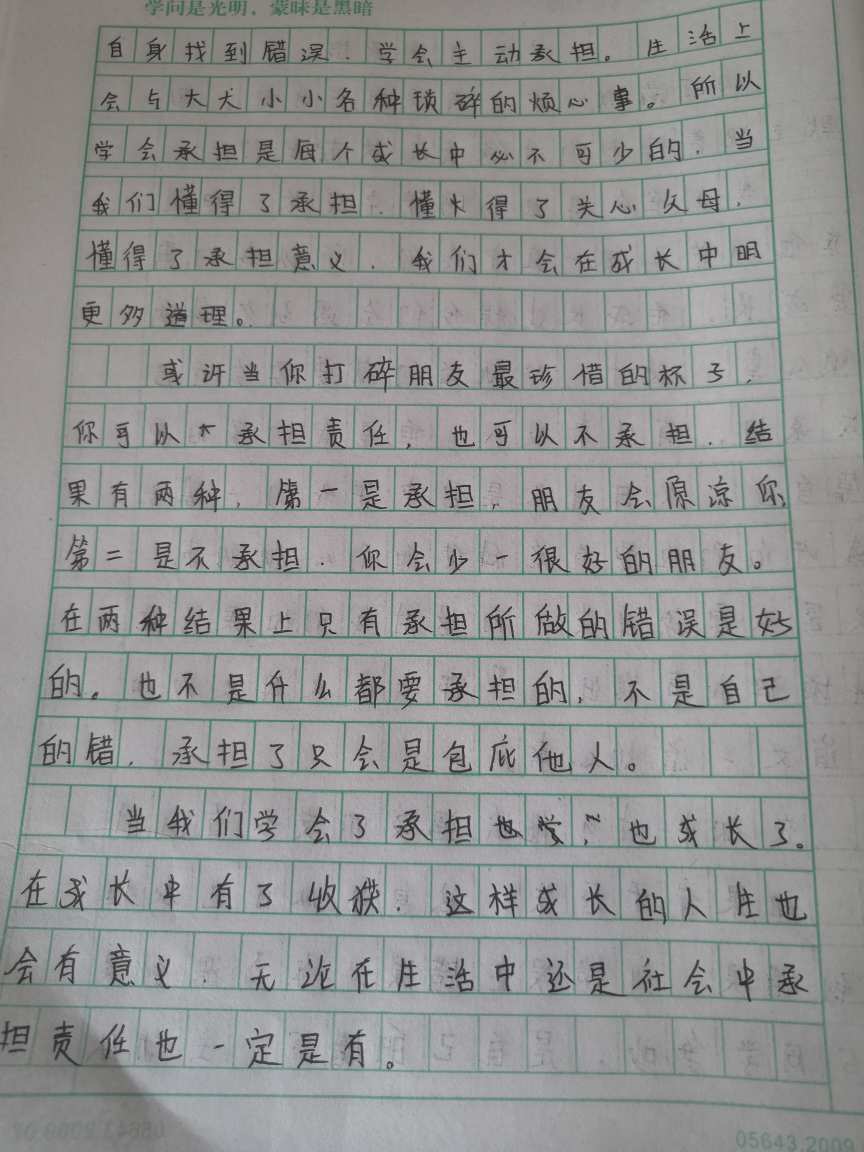 学问是光明，蒙昧是黑暗
自身找到错误，学会主动承担。生活上
会与大大小小各种琐碎的烦心事。所以
学会承担是每个成长中必不可少的，当
我们懂得了承担，懂得了关心父母，
懂得了承担意义，我们才会在成长中明
更多道理。
或许当你打碎朋友最珍惜的杯子，
你可以承担责任，也可以不承担，结
果有两种，第一是承担，朋友会原凉你，
第二是不承担，你会少一很好的朋友。
在两种结果上只有承担所做的错误是好
的。也不是什么都要承担的，不是自己
的错，承担了只会是包庇他人。
当我们学会了承担，也成长了。
在成长中有了收获，这样成长的人生也
会有意义，无论在生活中还是社会中承
担责任也一定是有。
05643.2009